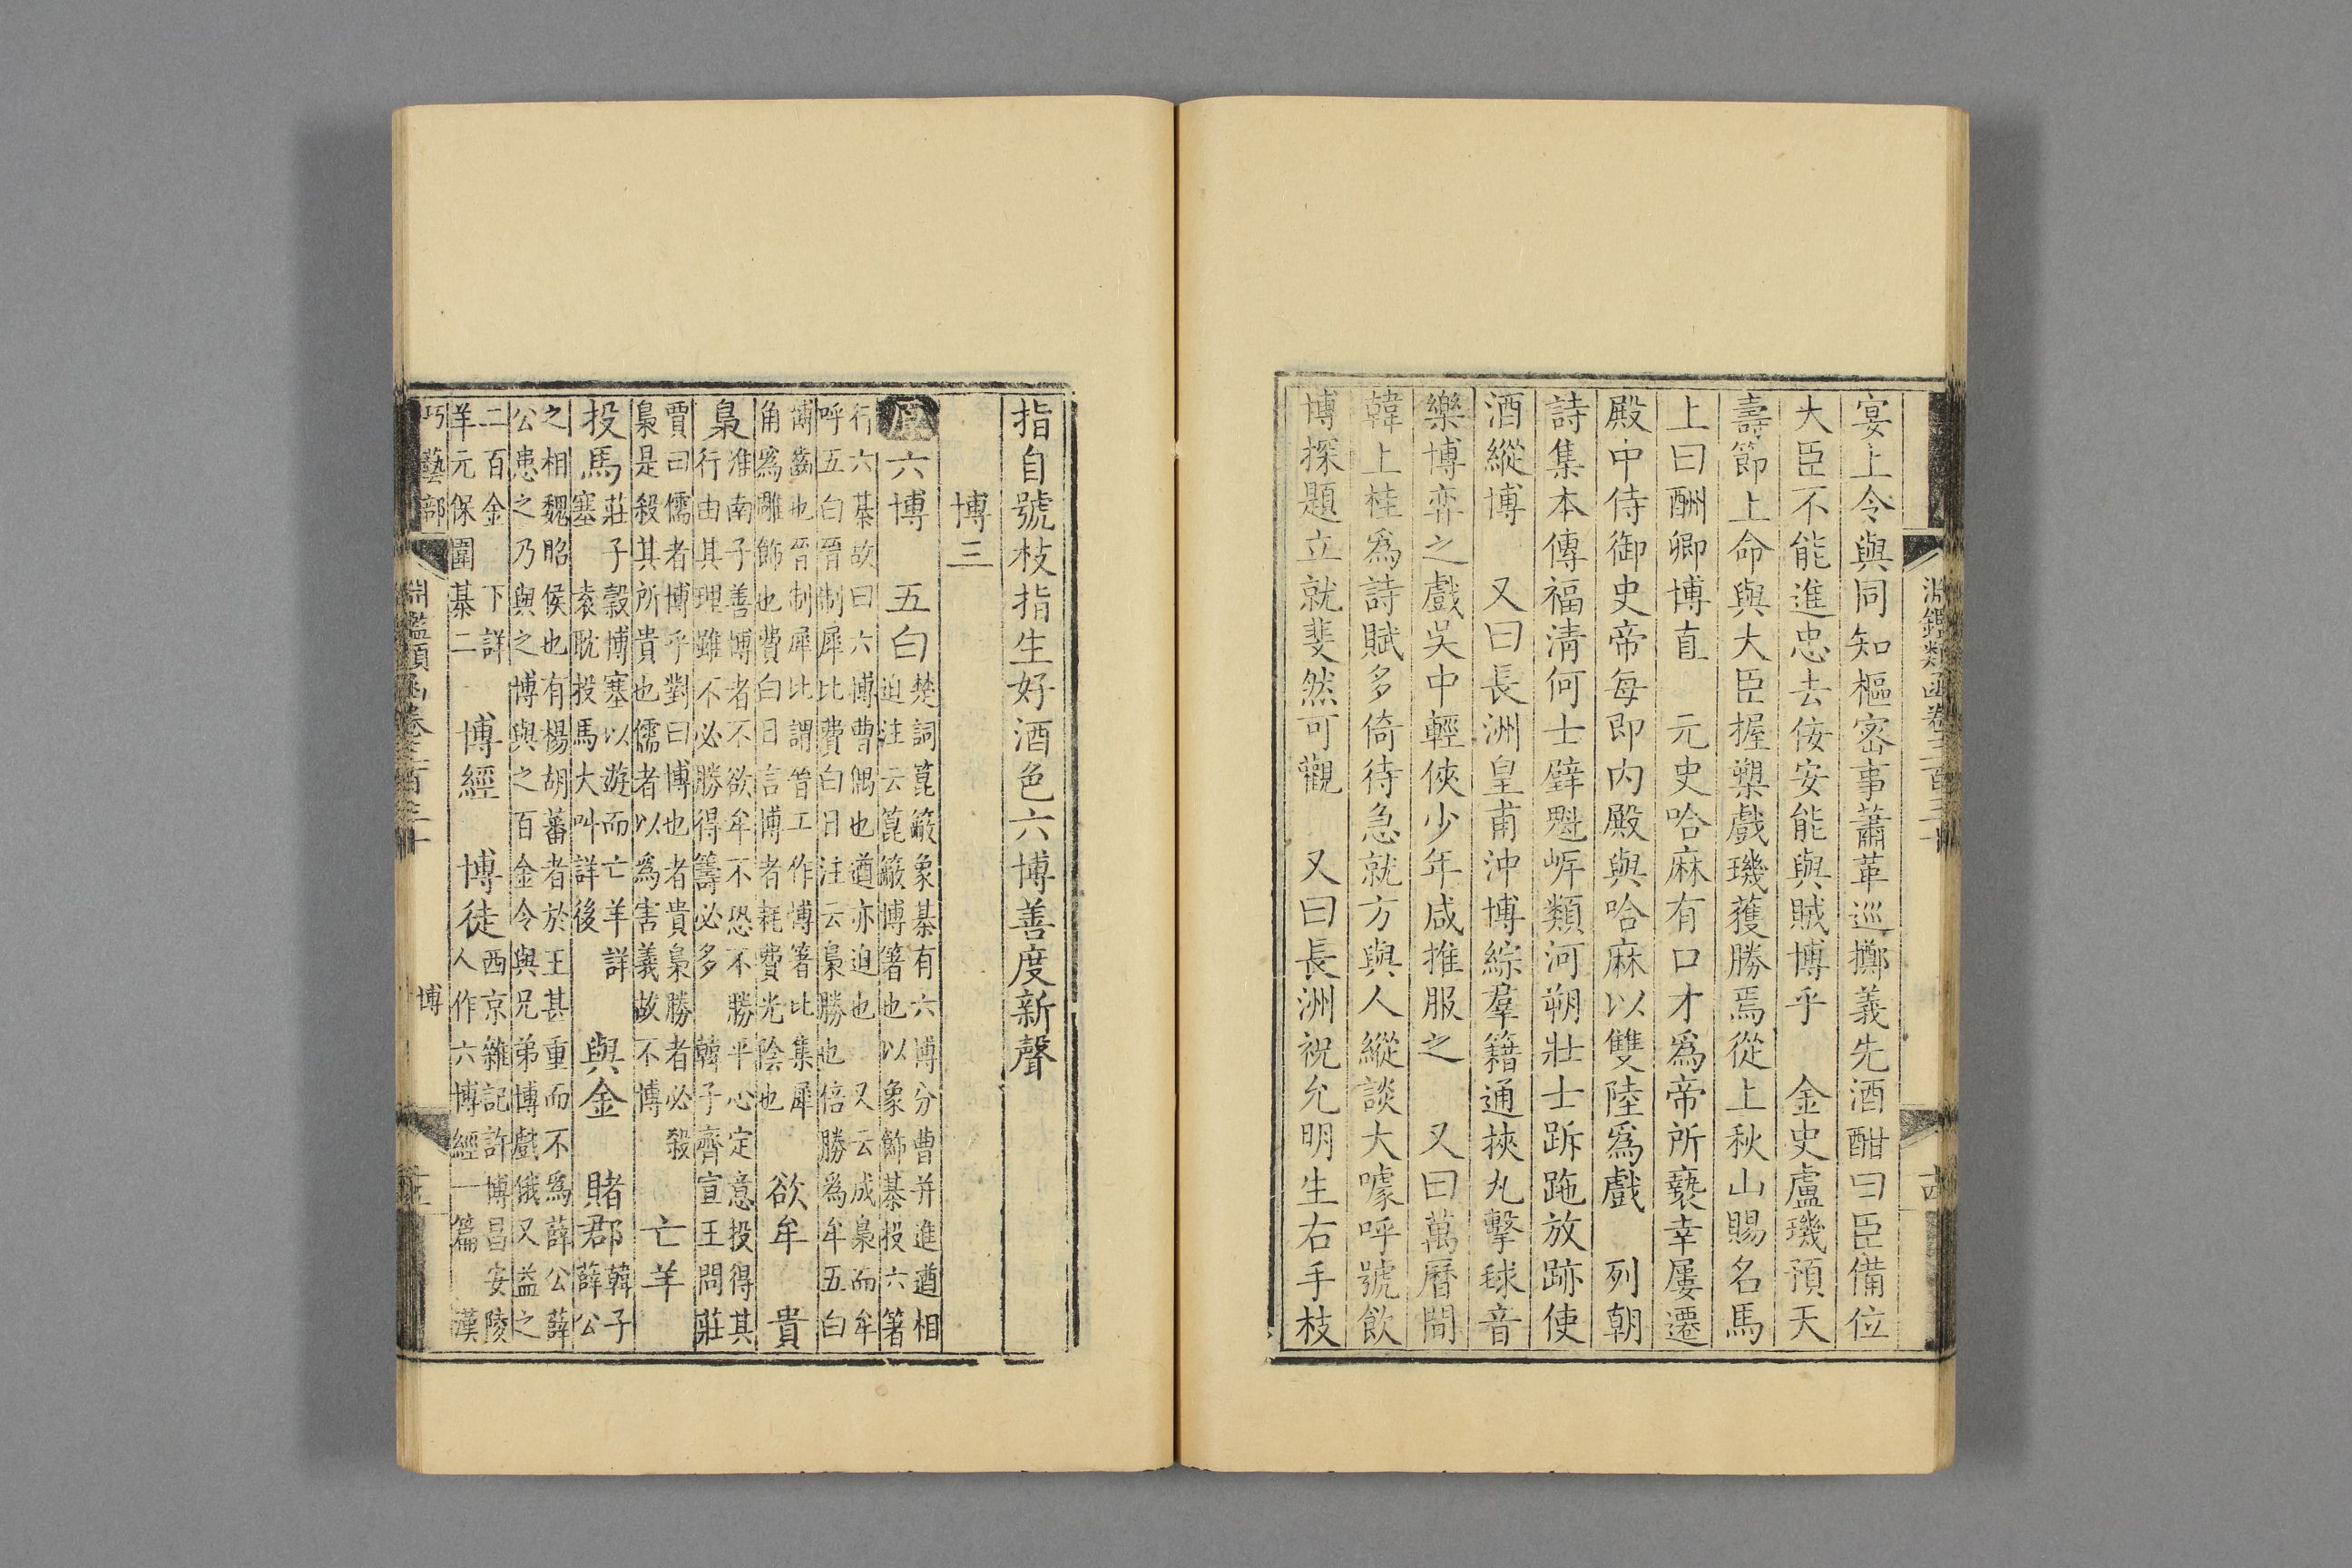 宴上令與同知樞密事蕭革巡擲義先酒酣曰臣備位
大臣不能進忠去佞安能與賊博乎　金史盧璣預天
壽節上命與大臣握槊戲璣獲勝焉從上秋山賜名馬
上曰酬卿博直　元史哈麻有口才爲帝所褻幸屢遷
殿中侍御史帝每即内殿與哈麻以雙陸爲戲　列朝
詩集本傳福清何士璧魁岸類河朔壯士跅跎放跡使
酒縱博　又曰長洲皇甫沖博綜羣籍通挾九擊毬音
樂博弈之戲吳中輕俠少年咸推服之　又曰萬曆間
韓上桂爲詩賦多倚待急就方與人縱談大噱呼號飲
博探題立就斐然可觀　又曰長洲祝允明生右手枝
指自號枝指生好酒色六博善度新聲
博三
六博　五白楚詞菎蔽象棊有六博分曹并進遒相
迫注云菎蔽博箸也以象飾棊投六箸
行六棊故曰六博曹偶也遒亦迫也　又云成梟而牟
呼五白晉制犀比費白日注云梟勝也倍勝爲牟五白
博齒也晉制犀比謂晉工作博箸比集犀
角爲雕飾也費白日言博者耗費光陰也　欲牟　貴
梟淮南子善博者不欲牟不恐不勝平心定意投得其
行由其理雖不必勝得籌必多　韓子齊宣王問莊
賈曰儒者博乎對曰博也者貴梟勝者必殺
梟是殺其所貴也儒者以爲害義故不博　亡羊
投馬莊子穀博塞以遊而亡羊詳
塞　袁耽投馬大叫詳後　與金　賭郡韓子
薛公
之相魏昭侯也有楊胡蕃者於王甚重而不爲薛公薛
公患之乃與之博與之百金令與兄弟博戲俄又益之
二百金　下詳
羊元保圍棊二　博經　博徒西京雜記許博昌安陵
人作六博經一篇　漢
巧藝部
淵鑑類函卷三百三十
博